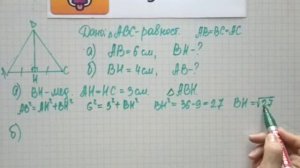 B
A
H
C
Дано: △ABC - равност. AB=BC=AC
а) AB=6см, BH-?
б) BH=4см, AB-?
а) BH-мед. AH=HC=3см. △ABH
AB²=AH²+BH² 6²=3²+BH² BH²=36-9=27 BH=√27
б)